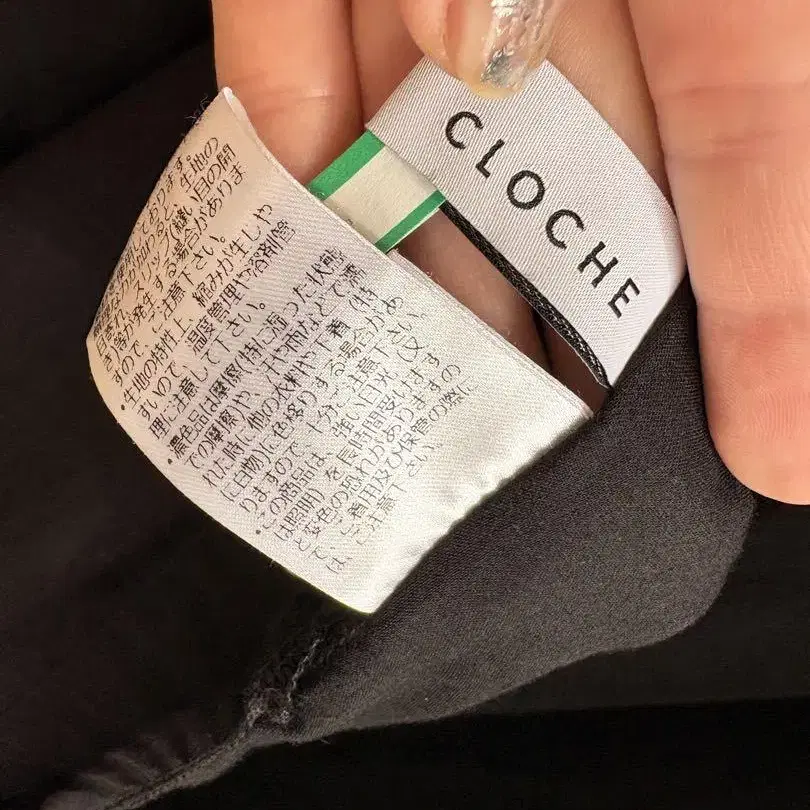 CLOCHE
しております。
生地の
目寄れ、スリップ(縫い目の開
き)等が発生する場合がありま
すので、ご注意下さい。
・生地の特性上、縮みが生じや
すいので、温度管理や溶剤管
理に注意して下さい。
・濃色品は摩擦(特に湿った状態
での摩擦)や、汗や雨などで濡
れた時に他の衣料や下着(特
に白物)に色移りする場合があ
りますので、十分ご注意下さい。
・この商品は、強い日光(又
は照明)を長時間受けます
と変色の恐れがありますの
で、ご着用及び保管の際に
は、ご注意下さい。